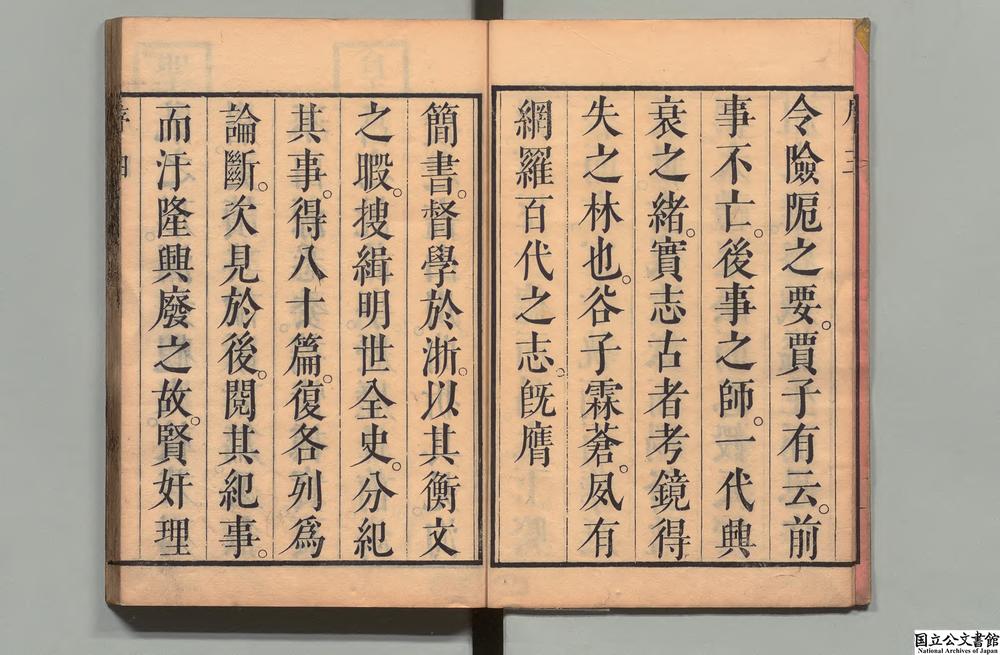 令險阨之要。賈子有云。前
事不亡。後事之師。一代興
衰之緒。實志古者考鏡得
失之林也。谷子霖蒼。夙有
網羅百代之志。旣膺
簡書。督學於浙。以其衡文
之暇。搜緝明世全史。分紀
其事。得八十篇。復各列爲
論斷。次見於後。閱其紀事。
而汙隆興廢之故。賢奸理
国立公文書館
National Archives of Japan